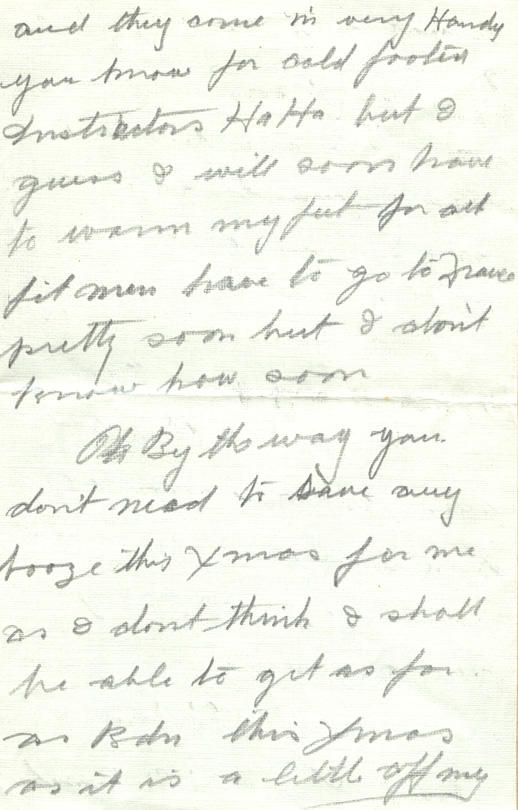 and they come in very Handy
you know for cold footed
Instructors Ha Ha but I
guess I will soon have
to warm my feet for all
fit men have to go to France
pretty soon but I don't
know how soon
Oh By the way you
don't need to save any
booze this Xmas for me
as I dont think I shall
be able to get as far
as Bdn this Xmas
as it is a little off my